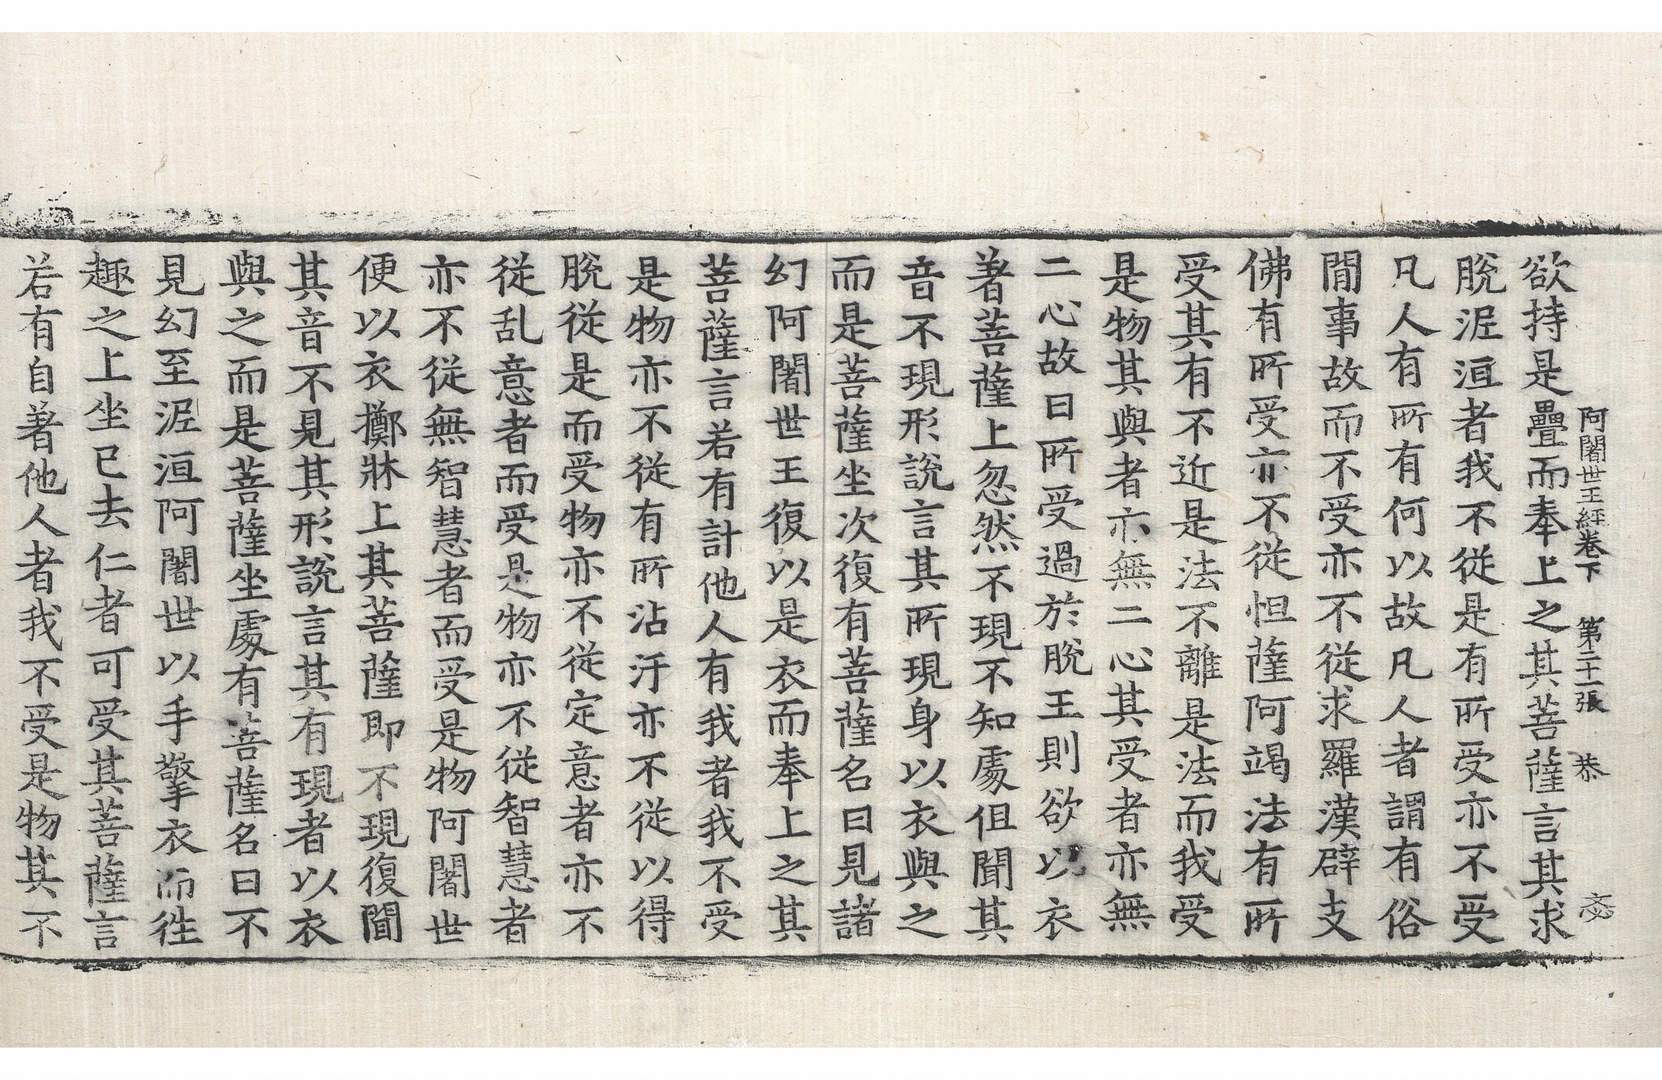 阿闍世王經卷下　第二十一張　恭
欲持是疊而奉上之其菩薩言其求
脫泥洹者我不從是有所受亦不受
凡人有所有何以故凡人者謂有俗
閒事故而不受亦不從求羅漢辟支
佛有所受亦不從怛薩阿竭法有所
受其有不近是法不離是法而我受
是物其與者亦無二心其受者亦無
二心故曰所受過於脫王則欲以衣
著菩薩上忽然不現不知處但聞其
音不現形說言其所現身以衣與之
而是菩薩坐次復有菩薩名曰見諸
幻阿闍世王復以是衣而奉上之其
菩薩言若有計他人有我者我不受
是物亦不從有所沾汙亦不從以得
脫從是而受物亦不從定意者亦不
從乱意者而受是物亦不從智慧者
亦不從無智慧者而受是物阿闍世
便以衣擲牀上其菩薩即不現復聞
其音不見其形說言其有現者以衣
與之而是菩薩坐處有菩薩名曰不
見幻至泥洹阿闍世以手擎衣而往
趣之上坐已去仁者可受其菩薩言
若有自著他人者我不受是物其不